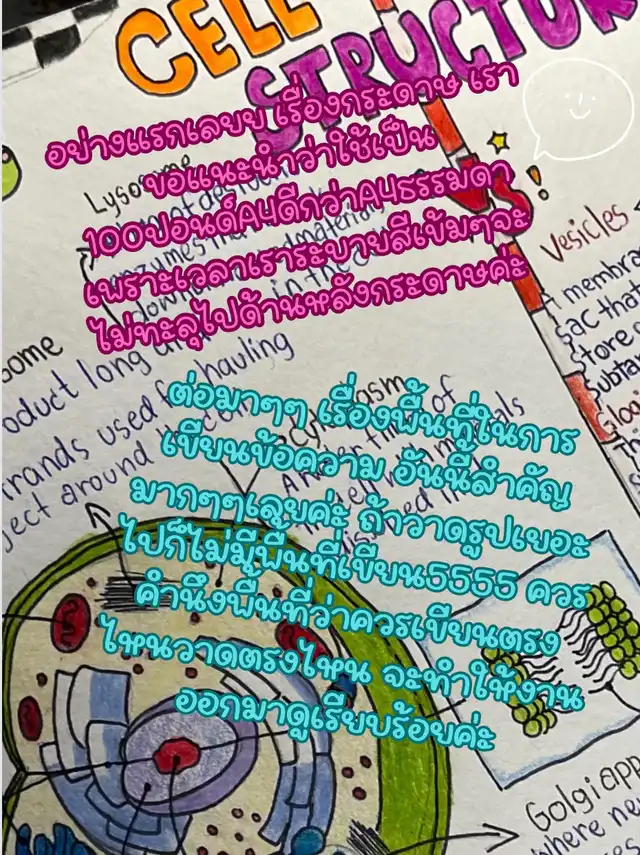 CELL
STRUCTUR
อย่างแรกเลยย เรื่องกระดาษ เรา
ขอแนะนำว่าใช้เป็น
100ปอนด์A4ดีกว่าA4ธรรมดา
เพราะเวลาเราระบายสีเข้มๆจะ
ไม่ทะลุไปด้านหลังกระดาษค่ะ
Lysosome
in the
some
oduct long
trands used for hauling
ject around
ต่อมาๆๆ เรื่องพื้นที่ในการ
เขียนข้อความ อันนี้สำคัญ
มากๆๆเลยค่ะ ถ้าวาดรูปเยอะ
ไปก็ไม่มีพื้นที่เขียน5555 ควร
คำนึงพื้นที่ว่าควรเขียนตรง
ไหนวาดตรงไหน จะทำให้งาน
ออกมาดูเรียบร้อยค่ะ
Vesicles
A membra
sac that
Store
Substa
Golgi app
where ne